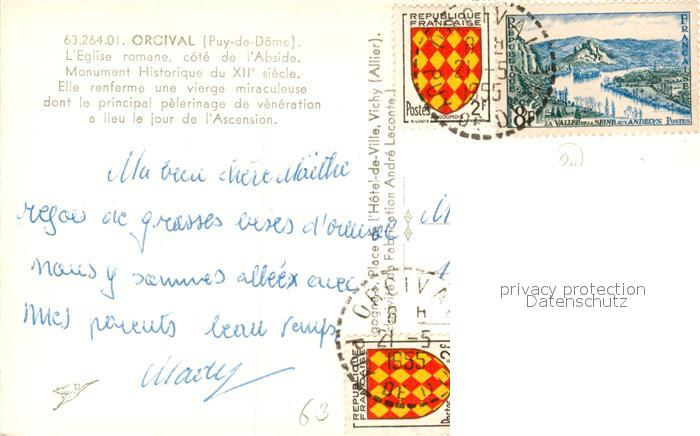 63.264.01. ORCIVAL (Puy-de-Dôme).
L'Eglise romane, côté de l'Abside.
Monument Historique du XIIe siècle.
Elle renferme une vierge miraculeuse
dont le principal pèlerinage de vénération
a lieu le jour de l'Ascension.
Ma bien chère Maïthé
reçois de grosses bises d'orcival
nous y sommes allées avec
mes parents beau temps
63
Place de l'Hôtel-de-Ville, Vichy (Allier).
de Fabrication André Leconte.
REPUBLIQUE
FRANÇAISE
Postes 2F
ORCIVAL
21-5
1955
P. DE D.
REPUBLIQUE
FRANÇAISE
8F
LA VALLÉE DE LA SEINE AUX ANDELYS POSTES
privacy protection
Datenschutz
ORCIVA
H
21-5
1955
REPUBLIQUE
FRANÇAISE
2F